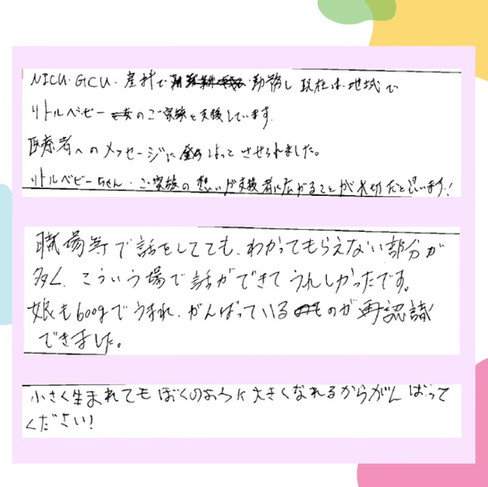 NICU・GCU・産科で 勤務し 現在は 地域で
リトルベビー のご家族を支援しています。
医療者へのメッセージに はっと させられました。
リトルベビーちゃん・ご家族の想いが支援者に広がることが大切だと思います!
職場等で話をしてても、わかってもらえない部分が
多く、こういう場で話ができてうれしかったです。
娘も600gでうまれ、がんばっている ものが 再認識
できました。
小さく生まれてもぼくのように大きくなれるからがんばって
ください!